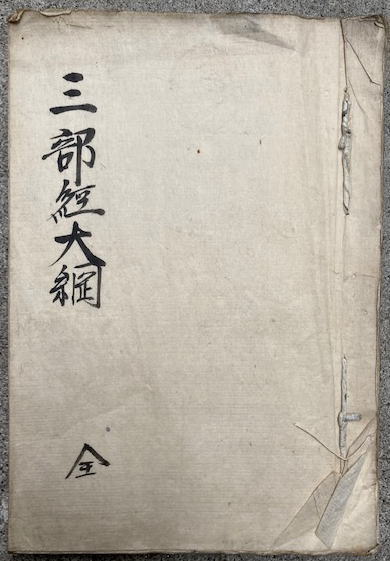 三部経大綱
全